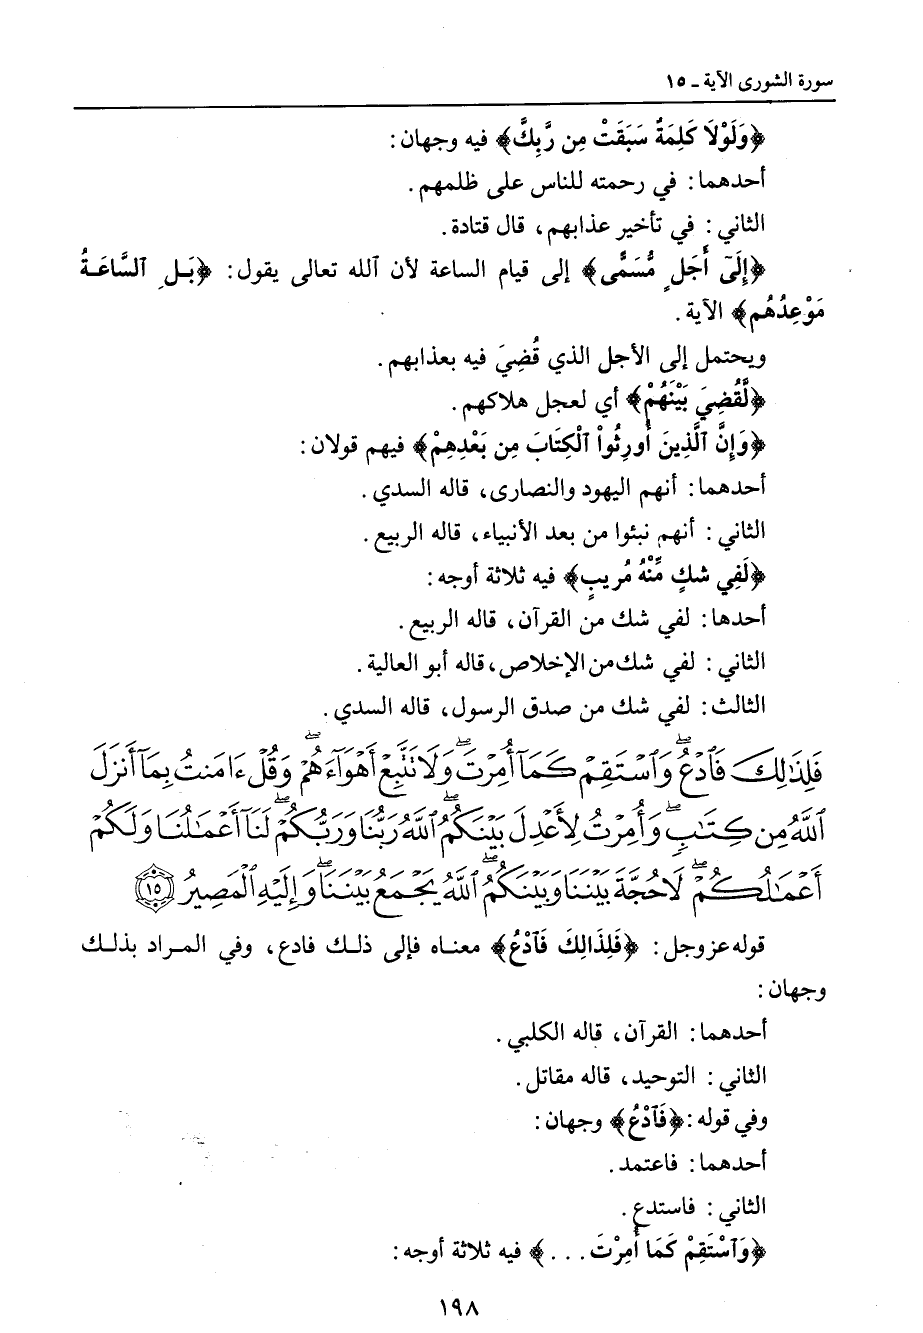 سورة الشورى الآية ـ ١٥
﴿وَلَوْلَا كَلِمَةٌ سَبَقَتْ مِن رَّبِّكَ﴾ فيه وجهان:
أحدهما: في رحمته للناس على ظلمهم.
الثاني: في تأخير عذابهم، قال قتادة.
﴿إِلَىٰٓ أَجَلٍ مُّسَمًّى﴾ إلى قيام الساعة لأن ٱلله تعالى يقول: ﴿بَلِ ٱلسَّاعَةُ
مَوْعِدُهُم﴾ الآية.
ويحتمل إلى الأجل الذي قُضِيَ فيه بعذابهم.
﴿لَّقُضِيَ بَيْنَهُمْ﴾ أي لعجل هلاكهم.
﴿وَإِنَّ ٱلَّذِينَ أُورِثُواْ ٱلْكِتَابَ مِن بَعْدِهِمْ﴾ فيهم قولان:
أحدهما: أنهم اليهود والنصارى، قاله السدي.
الثاني: أنهم نبئوا من بعد الأنبياء، قاله الربيع.
﴿لَفِي شكٍ مِّنْهُ مُريبٍ﴾ فيه ثلاثة أوجه:
أحدها: لفي شك من القرآن، قاله الربيع.
الثاني: لفي شك من الإخلاص، قاله أبو العالية.
الثالث: لفي شك من صدق الرسول، قاله السدي.
فَلِذَٰلِكَ فَٱدْعُ ۖ وَٱسْتَقِمْ كَمَآ أُمِرْتَ ۖ وَلَا تَتَّبِعْ أَهْوَآءَهُمْ ۖ وَقُلْ ءَامَنتُ بِمَآ أَنزَلَ
ٱللَّهُ مِن كِتَٰبٍ ۖ وَأُمِرْتُ لِأَعْدِلَ بَيْنَكُمُ ۖ ٱللَّهُ رَبُّنَا وَرَبُّكُمْ ۖ لَنَآ أَعْمَٰلُنَا وَلَكُمْ
أَعْمَٰلُكُمْ ۖ لَا حُجَّةَ بَيْنَنَا وَبَيْنَكُمُ ۖ ٱللَّهُ يَجْمَعُ بَيْنَنَا ۖ وَإِلَيْهِ ٱلْمَصِيرُ ١٥
قوله عز وجل: ﴿فَلِذَالِكَ فَٱدْعُ﴾ معناه فإلى ذلك فادع، وفي المراد بذلك
وجهان:
أحدهما: القرآن، قاله الكلبي.
الثاني: التوحيد، قاله مقاتل.
وفي قوله: ﴿فَٱدْعُ﴾ وجهان:
أحدهما: فاعتمد.
الثاني: فاستدع.
﴿وَٱسْتَقِمْ كَمَا أُمِرْتَ...﴾ فيه ثلاثة أوجه:
١٩٨